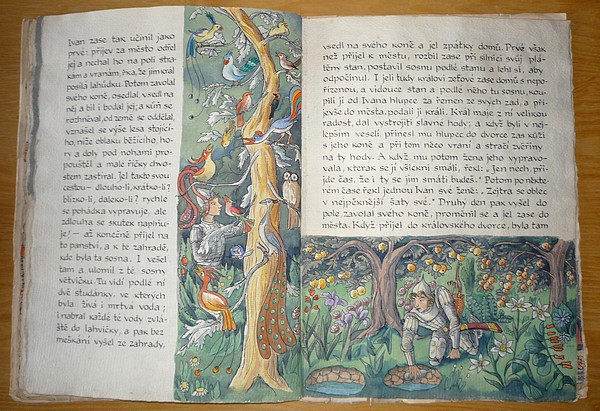 Ivan zase tak učinil jako
prve: přijev za město odřel
jej a nechal ho na poli stra-
kám a vranám, řka, že jim král
posílá lahůdku. Potom zavolal
svého koně, osedlal, vsedl na
něj a bil i bodal jej; a kůň se
rozhněval, od země se oddělil,
vznášel se výše lesa stojící-
ho, níže oblaku běžícího, ho-
ry a doly pod nohami pro-
pouštěl a malé říčky chvo-
stem zastíral. Jel takto svou
cestou – dlouho-li, krátko-li?
blízko-li, daleko-li? rychle
se pohádka vypravuje, ale
zdlouha se skutek naplňu-
je! – až konečně přijel na
to panství, a k té zahradě,
kde byla ta sosna. I vešel
tam a ulomil z té sosny
větvičku. Tu vidí podle ní
dvě studánky, ve kterých
byla živá i mrtvá voda;
i nabral každé té vody zvlá-
ště do lahvičky, a pak bez
meškání vyšel ze zahrady,
vsedl na svého koně a jel zpátky domů. Prvé však
než přijel k městu, rozbil zase při silnici svůj plá-
těný stan, postavil sosnu podlé stanu a lehl si, aby
odpočinul. I jeli tudy královi zeťové zase domů s nepo-
řízenou, a vidouce stan a podlé něho tu sosnu, kou-
pili ji od Ivana hlupce za řemen ze svých zad, a při-
jevše do města, podali ji králi. Král maje z ní velikou
radost, dal vystrojiti slavné hody; a když byli v nej-
lepším veselí přinesl mu hlupec do dvorce zas kůži
s jeho koně a při tom něco vraní a stračí zvěřiny
na ty hody. A když mu potom žena jeho vypravo-
vala, kterak se jí všickni smáli, řekl: „Jen nech, při-
jde čas, že i ty se jim smáti budeš." Potom po někte-
rém čase řekl jednou Ivan své ženě: „Zejtra se oblec
v nejpěknější šaty své." Druhý den pak vyšel do
pole, zavolal svého koně, proměnil se a jel zase do
města. Když přijel do královského dvorce, byla tam